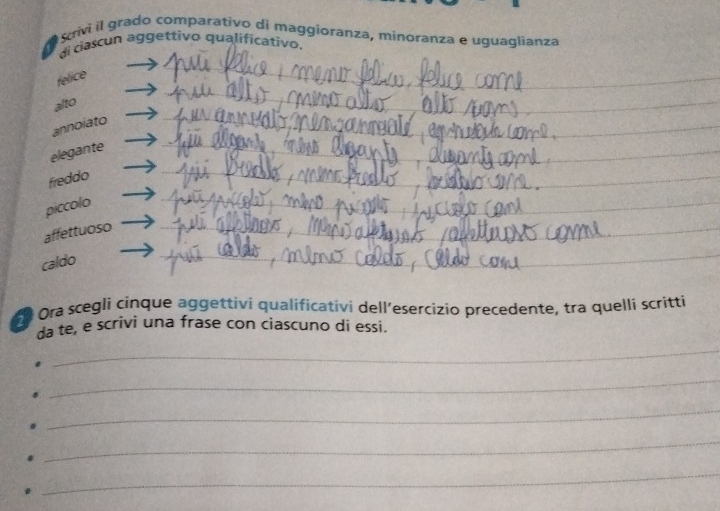 1 Scrivi il grado comparativo di maggioranza, minoranza e uguaglianza
di ciascun aggettivo qualificativo.
felice → più felice, meno felice, felice come
alto → più alto, meno alto alto come
annoiato → più annoiato, meno annoiato, annoiato come.
elegante → più elegante, meno elegante, elegante come,
freddo → più freddo, meno freddo, freddo come.
piccolo → più piccolo, meno piccolo, piccolo come
affettuoso → più affettuoso, meno affettuoso, affettuoso come.
caldo → più caldo, meno caldo, caldo come
2 Ora scegli cinque aggettivi qualificativi dell'esercizio precedente, tra quelli scritti
da te, e scrivi una frase con ciascuno di essi.